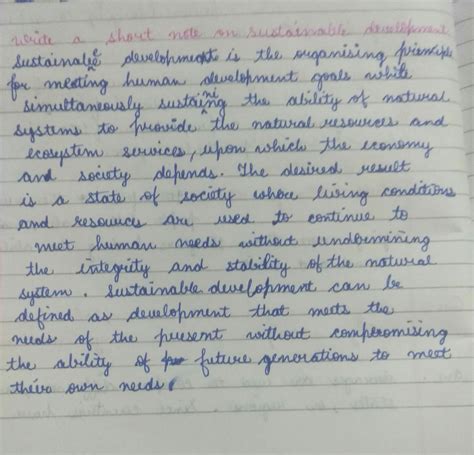 Write a short note on sustainable development
Sustainable development is the organising principle
for meeting human development goals while
simultaneously sustaining the ability of natural
systems to provide the natural resources and
ecosystem services, upon which the economy
and society depends. The desired result
is a state of society where living conditions
and resources are used to continue to
meet human needs without undermining
the integrity and stability of the natural
system. Sustainable development can be
defined as development that meets the
needs of the present without compromising
the ability of future generations to meet
their own needs.